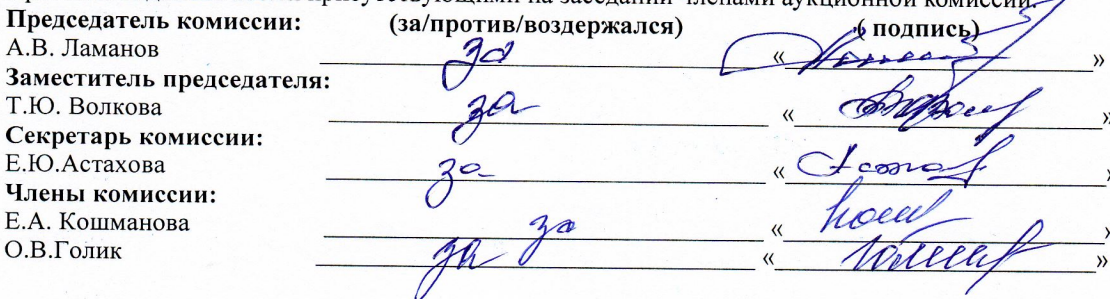 присутствующими на заседании членами аукционной комиссии.
Председатель комиссии: (за/против/воздержался) ( подпись)
А.В. Ламанов за « »
Заместитель председателя:
Т.Ю. Волкова за « »
Секретарь комиссии:
Е.Ю.Астахова за « Астах »
Члены комиссии:
Е.А. Кошманова за « Кош »
О.В.Голик за « Голик »